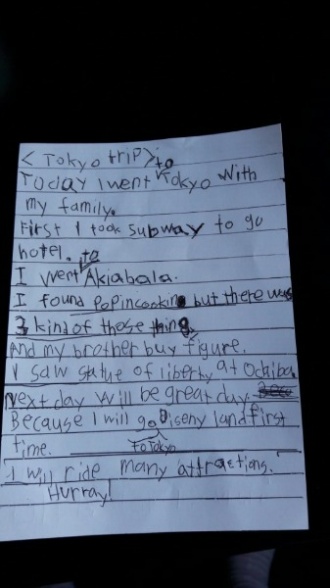 <Tokyo trip>
Today I went to Tokyo with
my family.
First I took subway to go
hotel.
I went to Akiabala.
I found Popincookin but there was
3 kind of those thing.
And my brother buy figure.
I saw statue of liberty at Odiba
Next day will be great day.
Because I will go Diseny land first
time.
to Tokyo
I will ride many attractions.
Hurray!